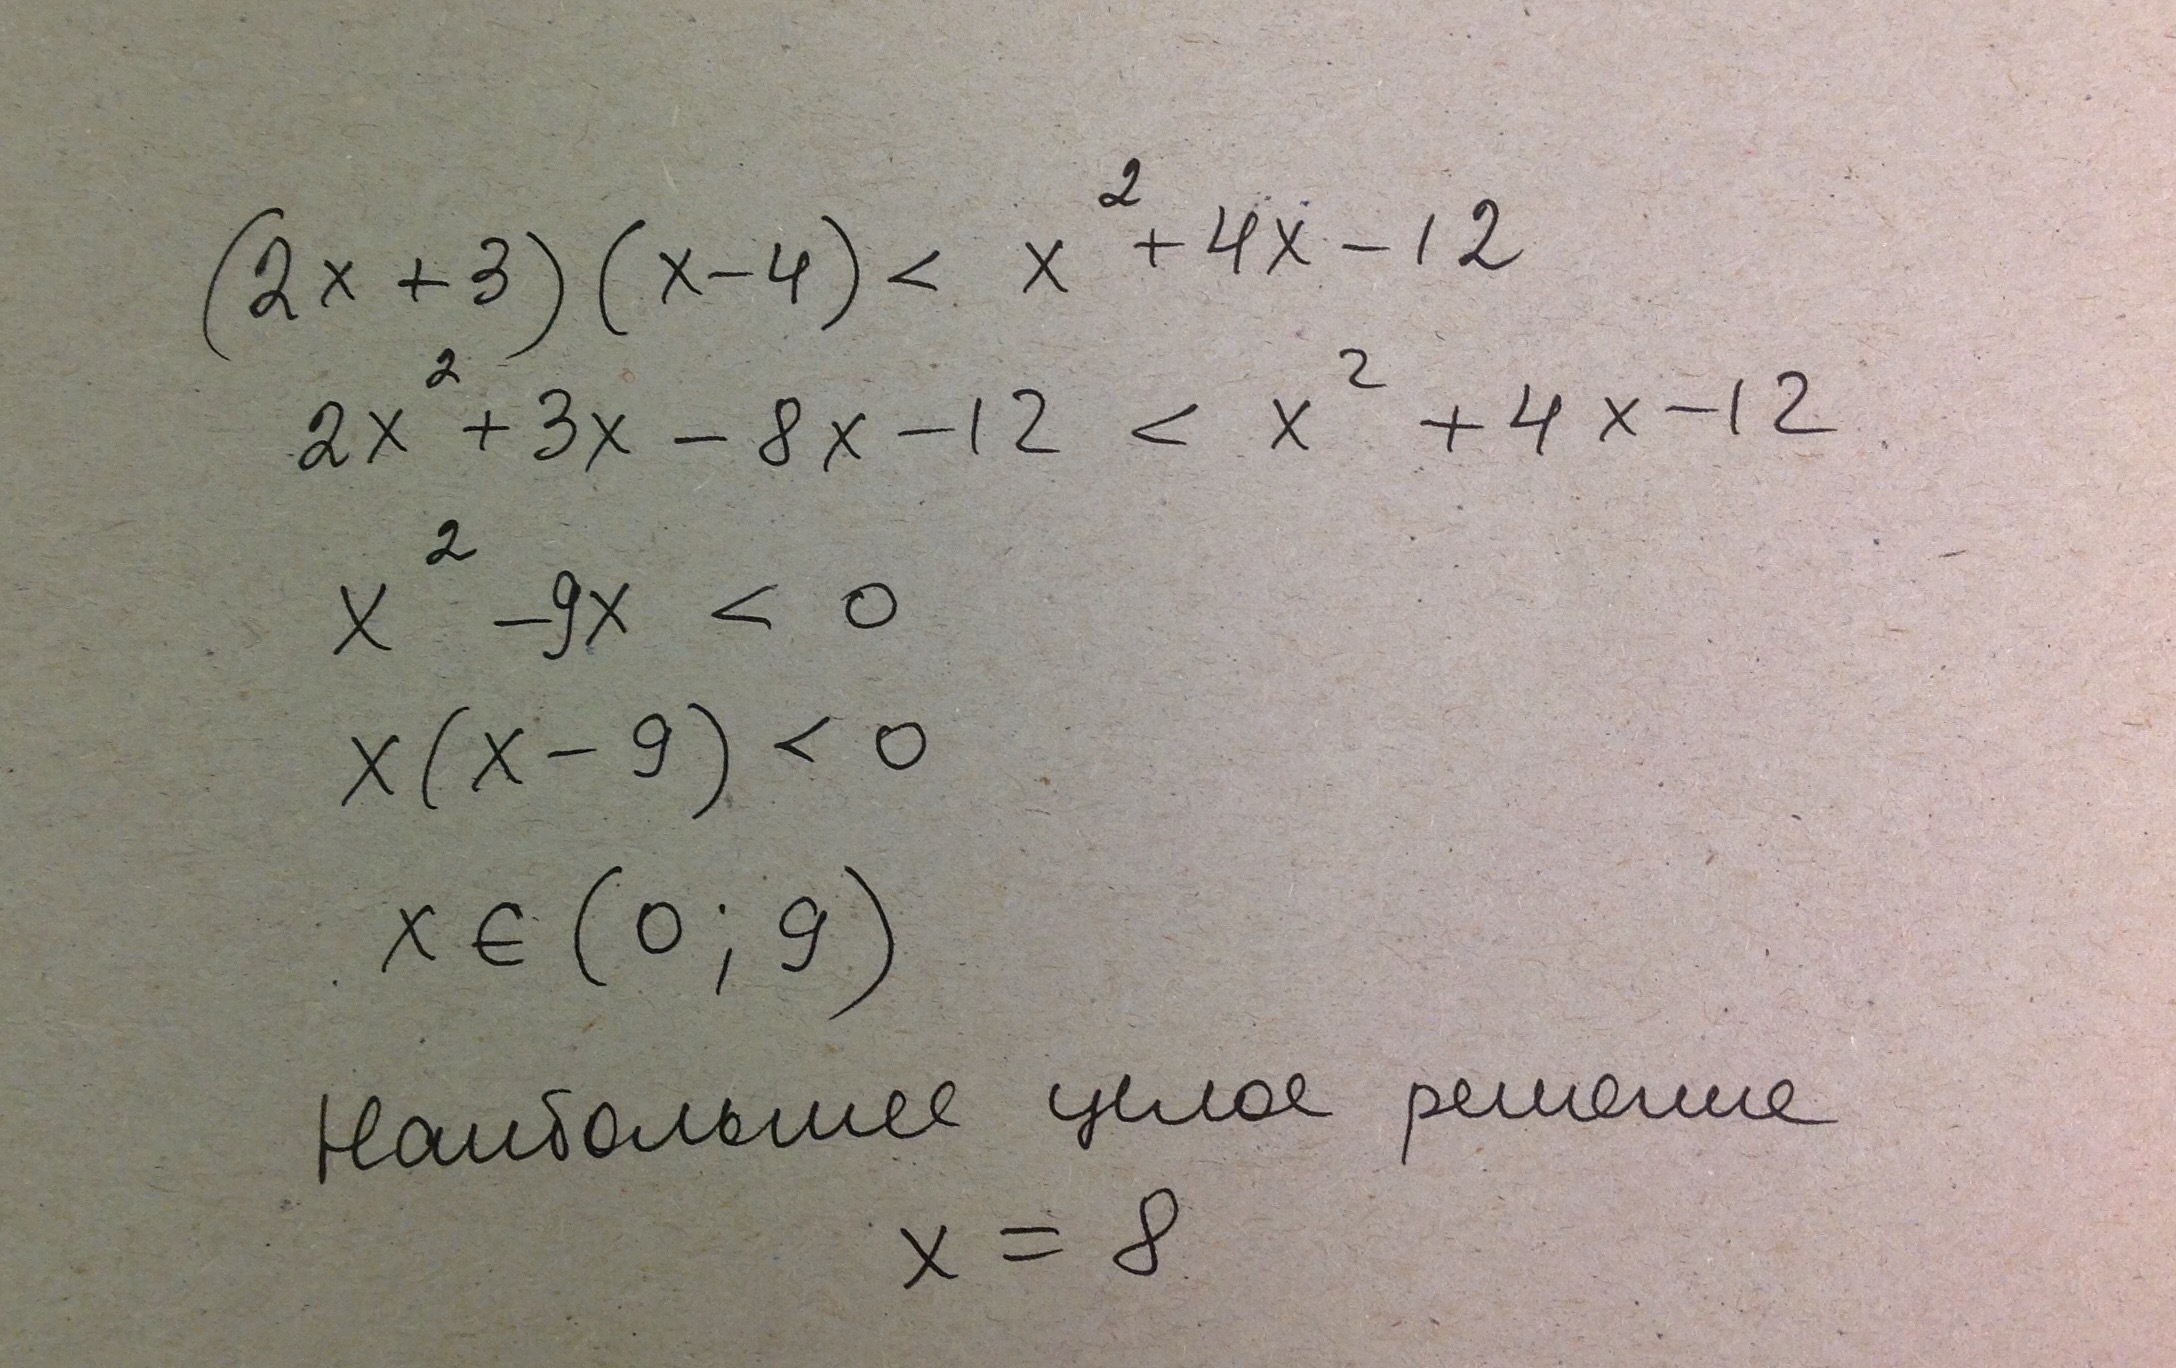 (2x + 3)(x - 4) < x² + 4x - 12
2x² + 3x - 8x - 12 < x² + 4x - 12
x² - 9x < 0
x(x - 9) < 0
x ∈ (0; 9)
Наибольшее целое решение
x = 8